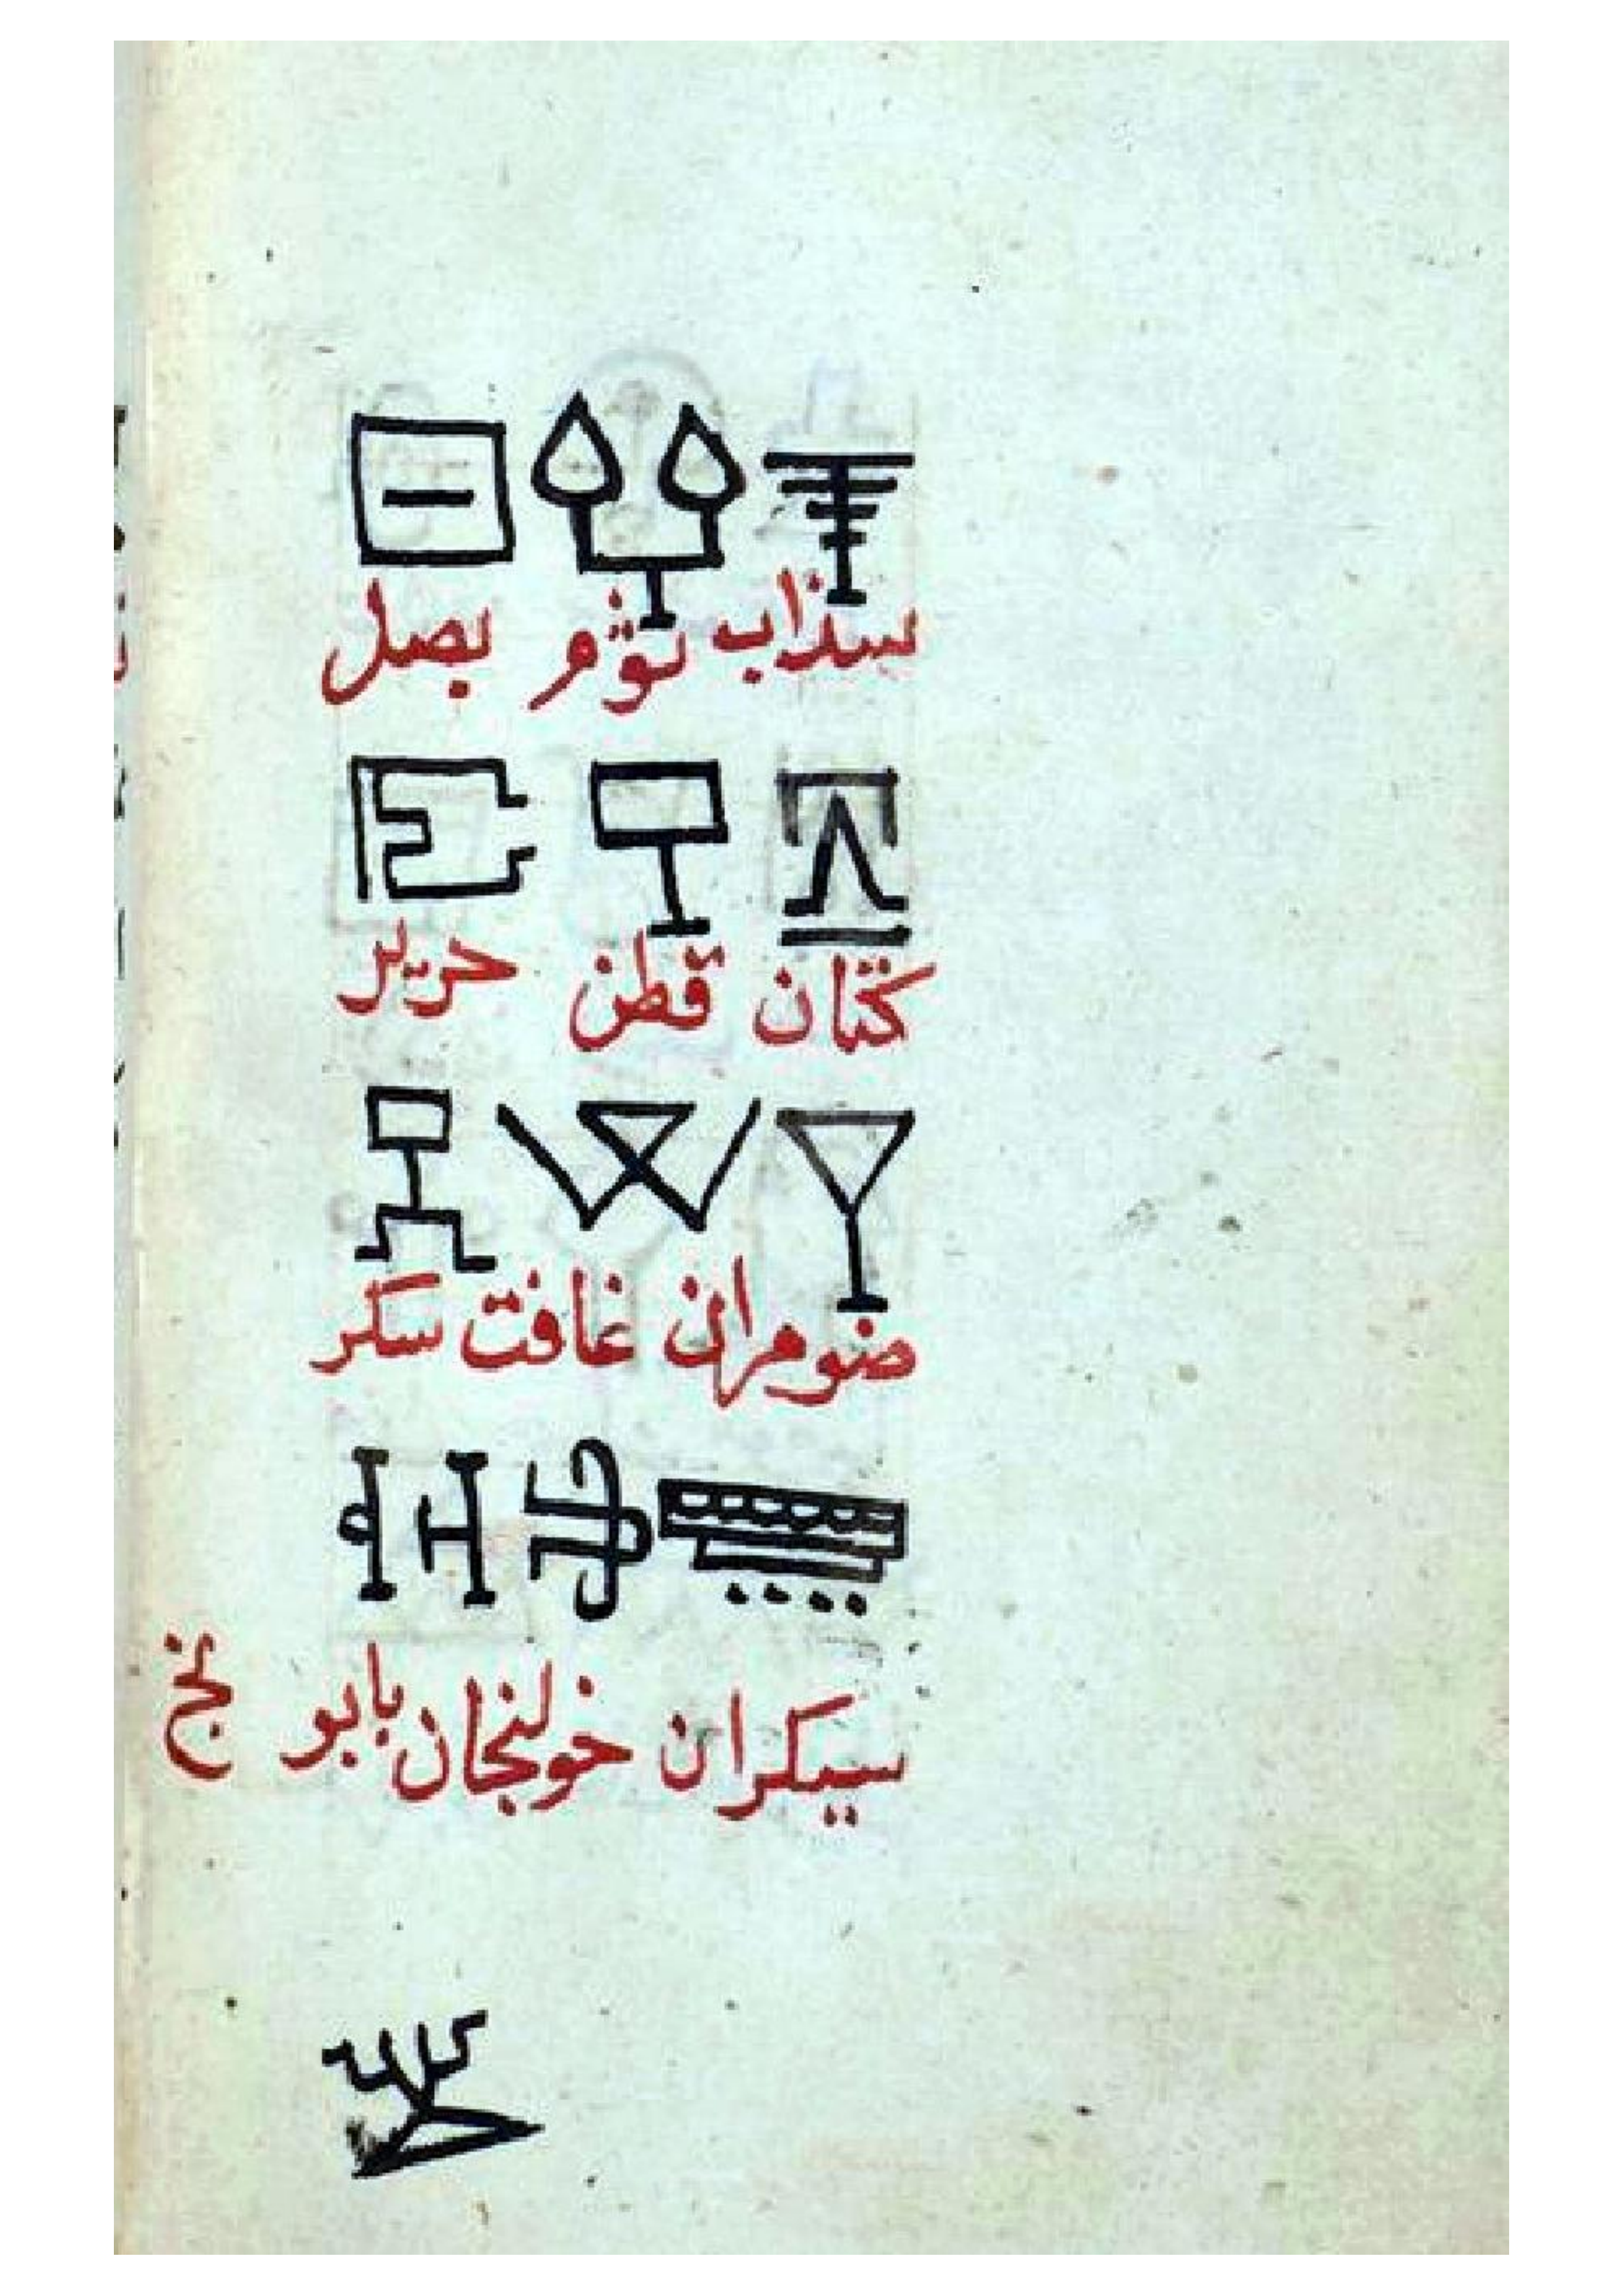 سذاب ثوم بصل
كتان قطن حرير
ضومران غافت سكر
سيكران خولنجان بابو نج